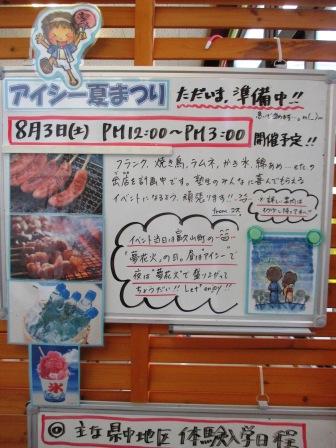 祭
アイシー夏まつり
ただいま、準備中!!
8月3日(土) PM12:00~PM3:00
開催予定!!
フランク、焼き鳥、ラムネ、かき氷、綿あめ…etcの
露店を計画中です。塾生のみんなに喜んでもらえる
イベントになるよう、頑張ります!!
イベント当日は富久山町の
"夢花火"の日。昼はアイシーで
夜は"夢花火"で盛り上がって
ちょうだい!! Let's enjoy!!
氷
◎ 主な県中地区 体験入学日程